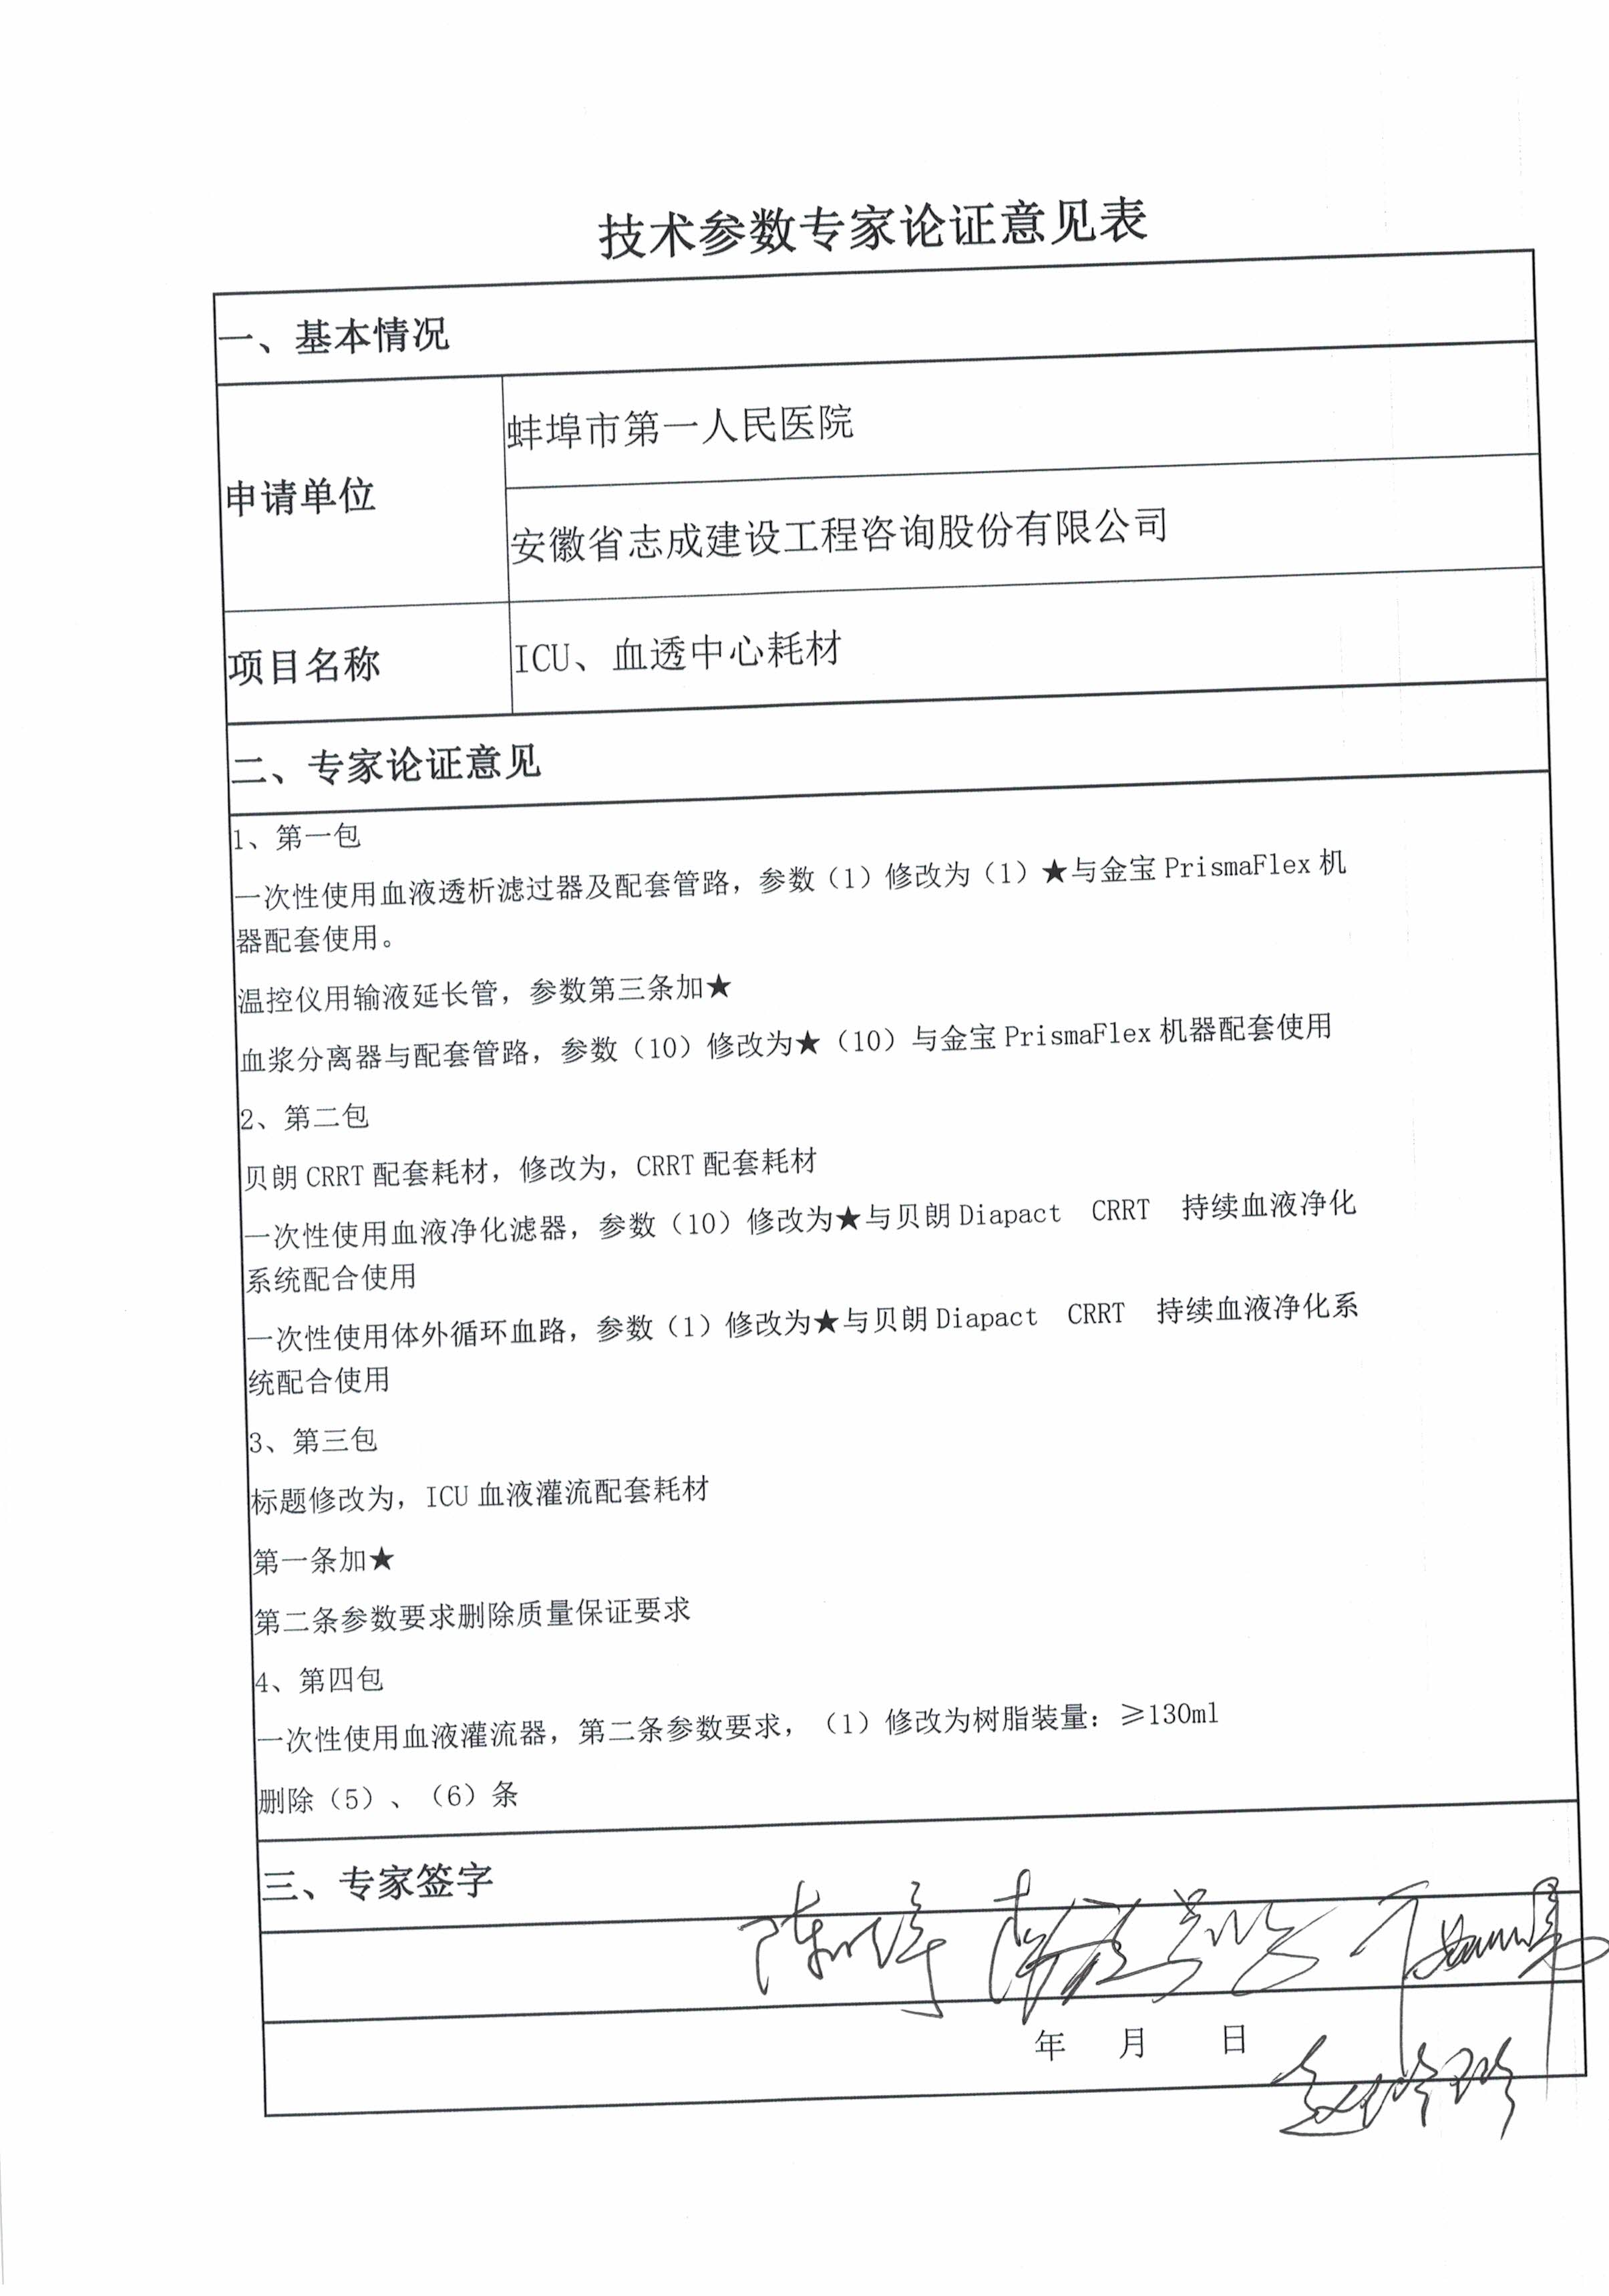 技术参数专家论证意见表
一、基本情况
申请单位
蚌埠市第一人民医院
安徽省志成建设工程咨询股份有限公司
项目名称
ICU、血透中心耗材
二、专家论证意见
1、第一包
一次性使用血液透析滤过器及配套管路，参数（1）修改为（1）★与金宝PrismaFlex机
器配套使用。
温控仪用输液延长管，参数第三条加★
血浆分离器与配套管路，参数（10）修改为★（10）与金宝PrismaFlex机器配套使用
2、第二包
贝朗CRRT配套耗材，修改为，CRRT配套耗材
一次性使用血液净化滤器，参数（10）修改为★与贝朗Diapact CRRT 持续血液净化
系统配合使用
一次性使用体外循环血路，参数（1）修改为★与贝朗Diapact CRRT 持续血液净化系
统配合使用
3、第三包
标题修改为，ICU血液灌流配套耗材
第一条加★
第二条参数要求删除质量保证要求
4、第四包
一次性使用血液灌流器，第二条参数要求，（1）修改为树脂装量：≥130ml
删除（5）、（6）条
三、专家签字
年 月 日